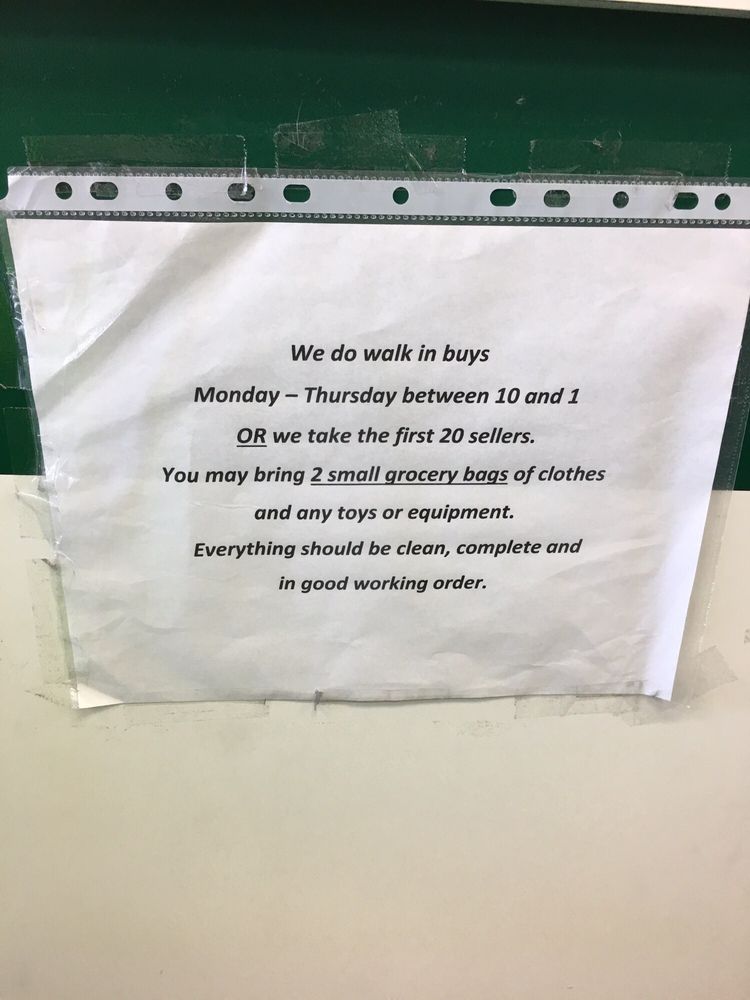 We do walk in buys
Monday – Thursday between 10 and 1
OR we take the first 20 sellers.
You may bring 2 small grocery bags of clothes
and any toys or equipment.
Everything should be clean, complete and
in good working order.